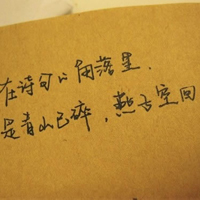 在诗句的角落里.
是青山已碎，燕子空回